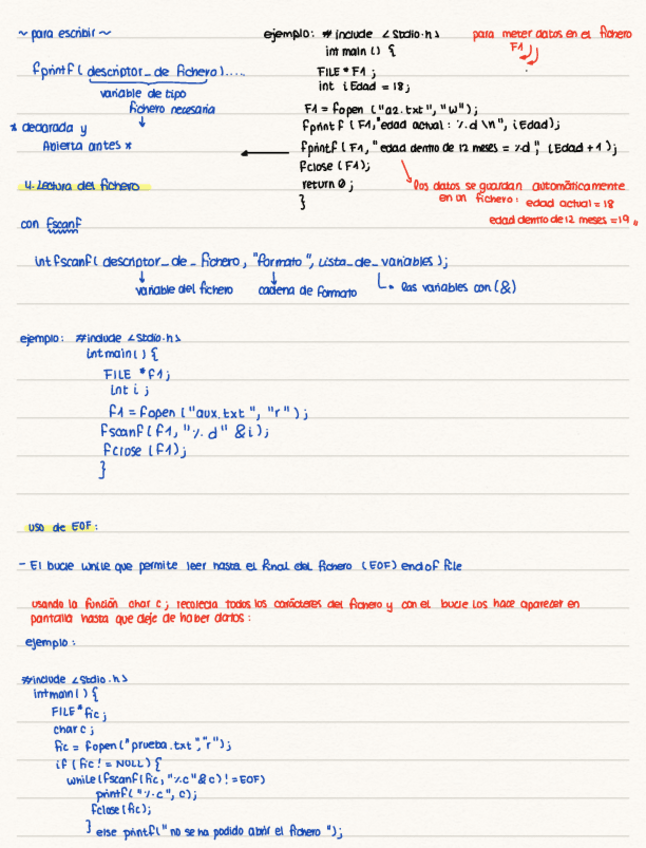 ~ para escribir ~
fprintf ( descriptor_de fichero)....
variable de tipo
fichero necesaria
* declarada y
Abierta antes *
ejemplo: # include <Stdio.h>
int main () {
FILE * F1 ;
int iEdad = 18;
F1 = fopen ("a2.txt", "w");
fprintf (F1, "edad actual : %d \n", iEdad);
fprintf (F1, " edad dentro de 12 meses = %d", (Edad + 1);
fclose (F1);
return 0 ;
}
para meter datos en el fichero
F1
los datos se guardan automáticamente
en un fichero: edad actual = 18
edad dentro de 12 meses = 19.
4. Lectura del fichero
con fscanf
int fscanf ( descriptor_de_fichero, "formato", Lista_de_variables );
variable del fichero
cadena de formato
las variables con (&)
ejemplo: #include <Stdio.h>
int main () {
FILE *f1;
int i ;
f1 = fopen ("aux.txt", "r") ;
fscanf( f1, "%d" &i);
fclose (f1);
}
uso de EOF:
- El bucle while que permite leer hasta el final del fichero (EOF) end of file
usando la función char c ; recolecta todos los carácteres del fichero y con el bucle los hace aparecer en
pantalla hasta que deje de haber datos :
ejemplo :
#include <Stdio.h>
int main () {
FILE* fic ;
char c ;
fic = fopen ("prueba.txt","r");
if ( fic != NULL) {
while (fscanf(fic, "%c" &c) != EOF)
printf( "%c", c);
fclose (fic);
} else printf( " no se ha podido abrir el fichero ");